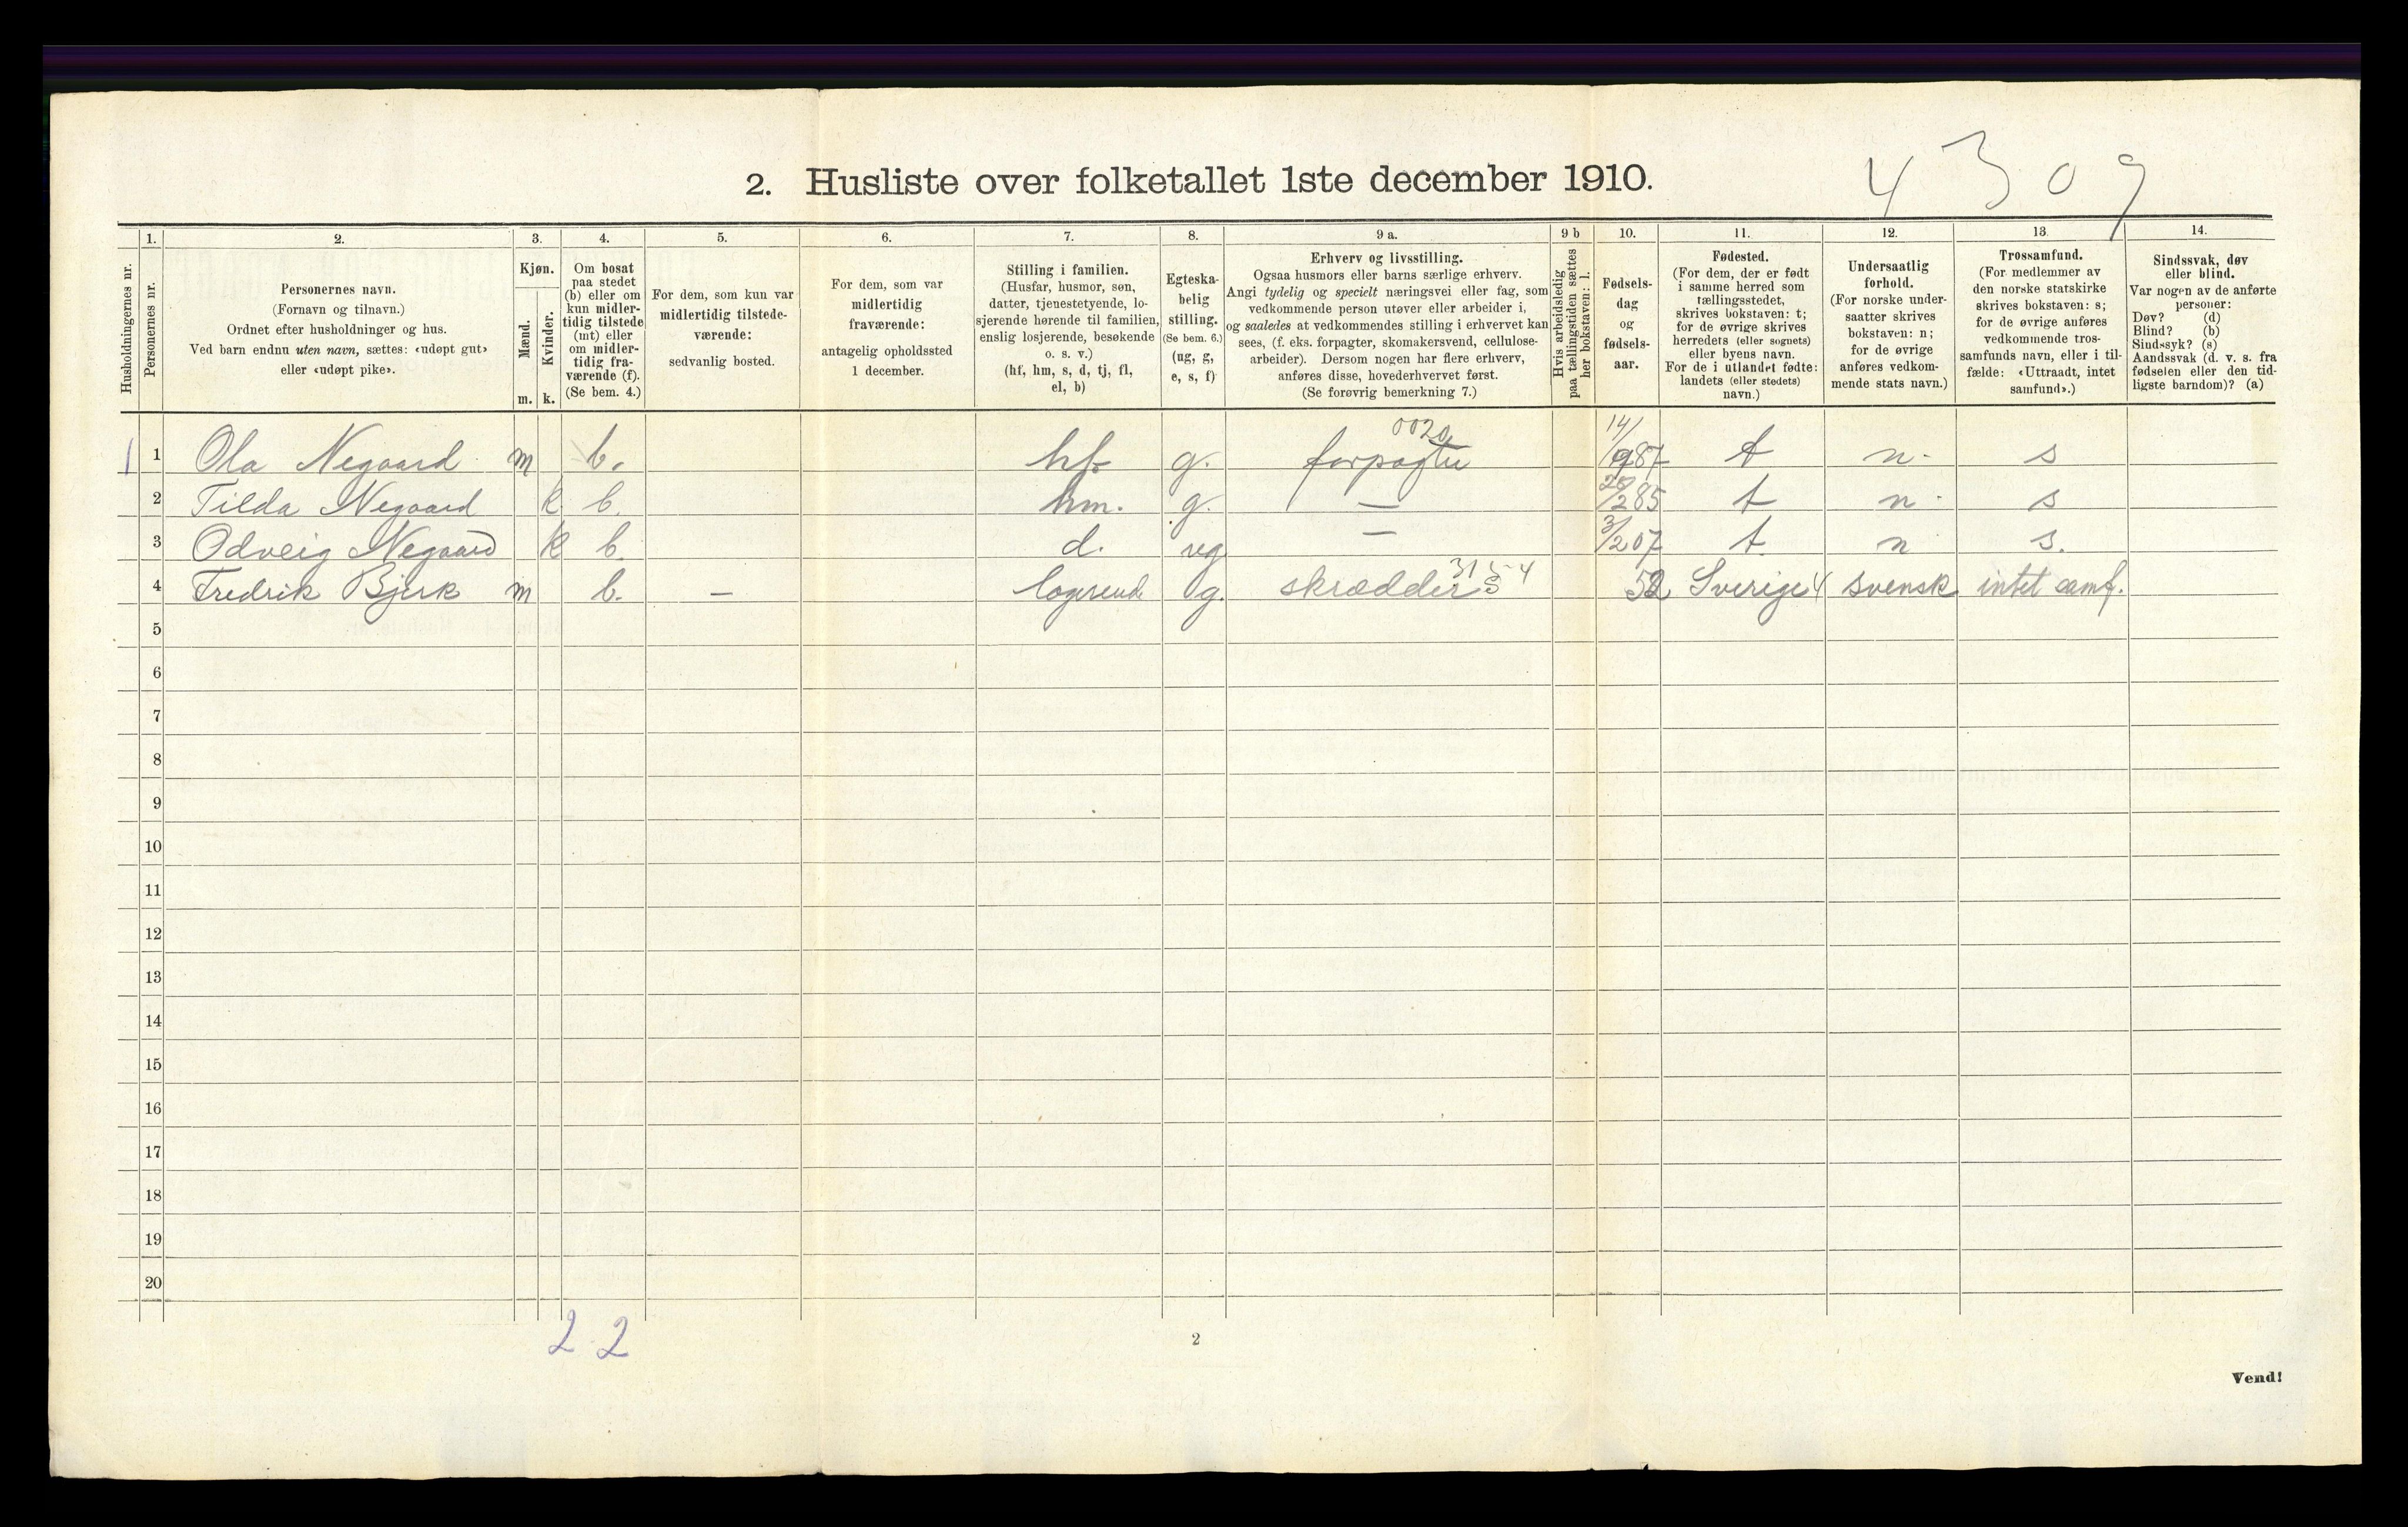 4309
2. Husliste over folketallet 1ste december 1910.
Husholdningernes nr.
1.
Personernes nr.
2.
Personernes navn.
(Fornavn og tilnavn.)
Ordnet efter husholdninger og hus.
Ved barn endnu uten navn, sættes: «udøpt gut»
eller «udøpt pike».
3.
Kjøn.
Mænd.
Kvinder.
m. k.
4.
Om bosat
paa stedet
(b) eller om
kun midler-
tidig tilstede
(mt) eller
om midler-
tidig fra-
værende (f).
(Se bem. 4.)
5.
For dem, som kun var
midlertidig tilstede-
værende:
sedvanlig bosted.
6.
For dem, som var
midlertidig
fraværende:
antagelig opholdssted
1 december.
7.
Stilling i familien.
(Husfar, husmor, søn,
datter, tjenestetyende, lo-
sjerende hørende til familien,
enslig losjerende, besøkende
o. s. v.)
(hf, hm, s, d, tj, fl,
el, b)
8.
Egteska-
belig
stilling.
(Se bem. 6.)
(ug, g,
e, s, f)
9 a.
Erhverv og livsstilling.
Ogsaa husmors eller barns særlige erhverv.
Angi tydelig og specielt næringsvei eller fag, som
vedkommende person utøver eller arbeider i,
og saaledes at vedkommendes stilling i erhvervet kan
sees, (f. eks. forpagter, skomakersvend, cellulose-
arbeider). Dersom nogen har flere erhverv,
anføres disse, hovederhvervet først.
(Se forøvrig bemerkning 7.)
9 b
Hvis arbeidsledig
paa tællingstiden sættes
her bokstaven: l.
10.
Fødsels-
dag
og
fødsels-
aar.
11.
Fødested.
(For dem, der er født
i samme herred som
tællingsstedet,
skrives bokstaven: t;
for de øvrige skrives
herredets (eller sognets)
eller byens navn.
For de i utlandet fødte:
landets (eller stedets)
navn.)
12.
Undersaatlig
forhold.
(For norske under-
saatter skrives
bokstaven: n;
for de øvrige
anføres vedkom-
mende stats navn.)
13.
Trossamfund.
(For medlemmer av
den norske statskirke
skrives bokstaven: s;
for de øvrige anføres
vedkommende tros-
samfunds navn, eller i til-
fælde: «Uttraadt, intet
samfund».)
14.
Sindssvak, døv
eller blind.
Var nogen av de anførte
personer:
Døv? (d)
Blind? (b)
Sindssyk? (s)
Aandssvak (d. v. s. fra
fødselen eller den tid-
ligste barndom)? (a)
0020
1 1 Ola Negaard m b. hf. g. forpagter 14/9 87 t n. s
2 Tilda Negaard k b. hm. g. — 285 t n. s
3 Odveig Negaard k b. d. ug — 3/2 07 t. n s.
4 Fredrik Bjerk m b. — g. skrædder s Sverige 4 svensk intet samf.
5
6
7
8
9
10
11
12
13
14
15
16
17
18
19
20
2 2
2
Vend!